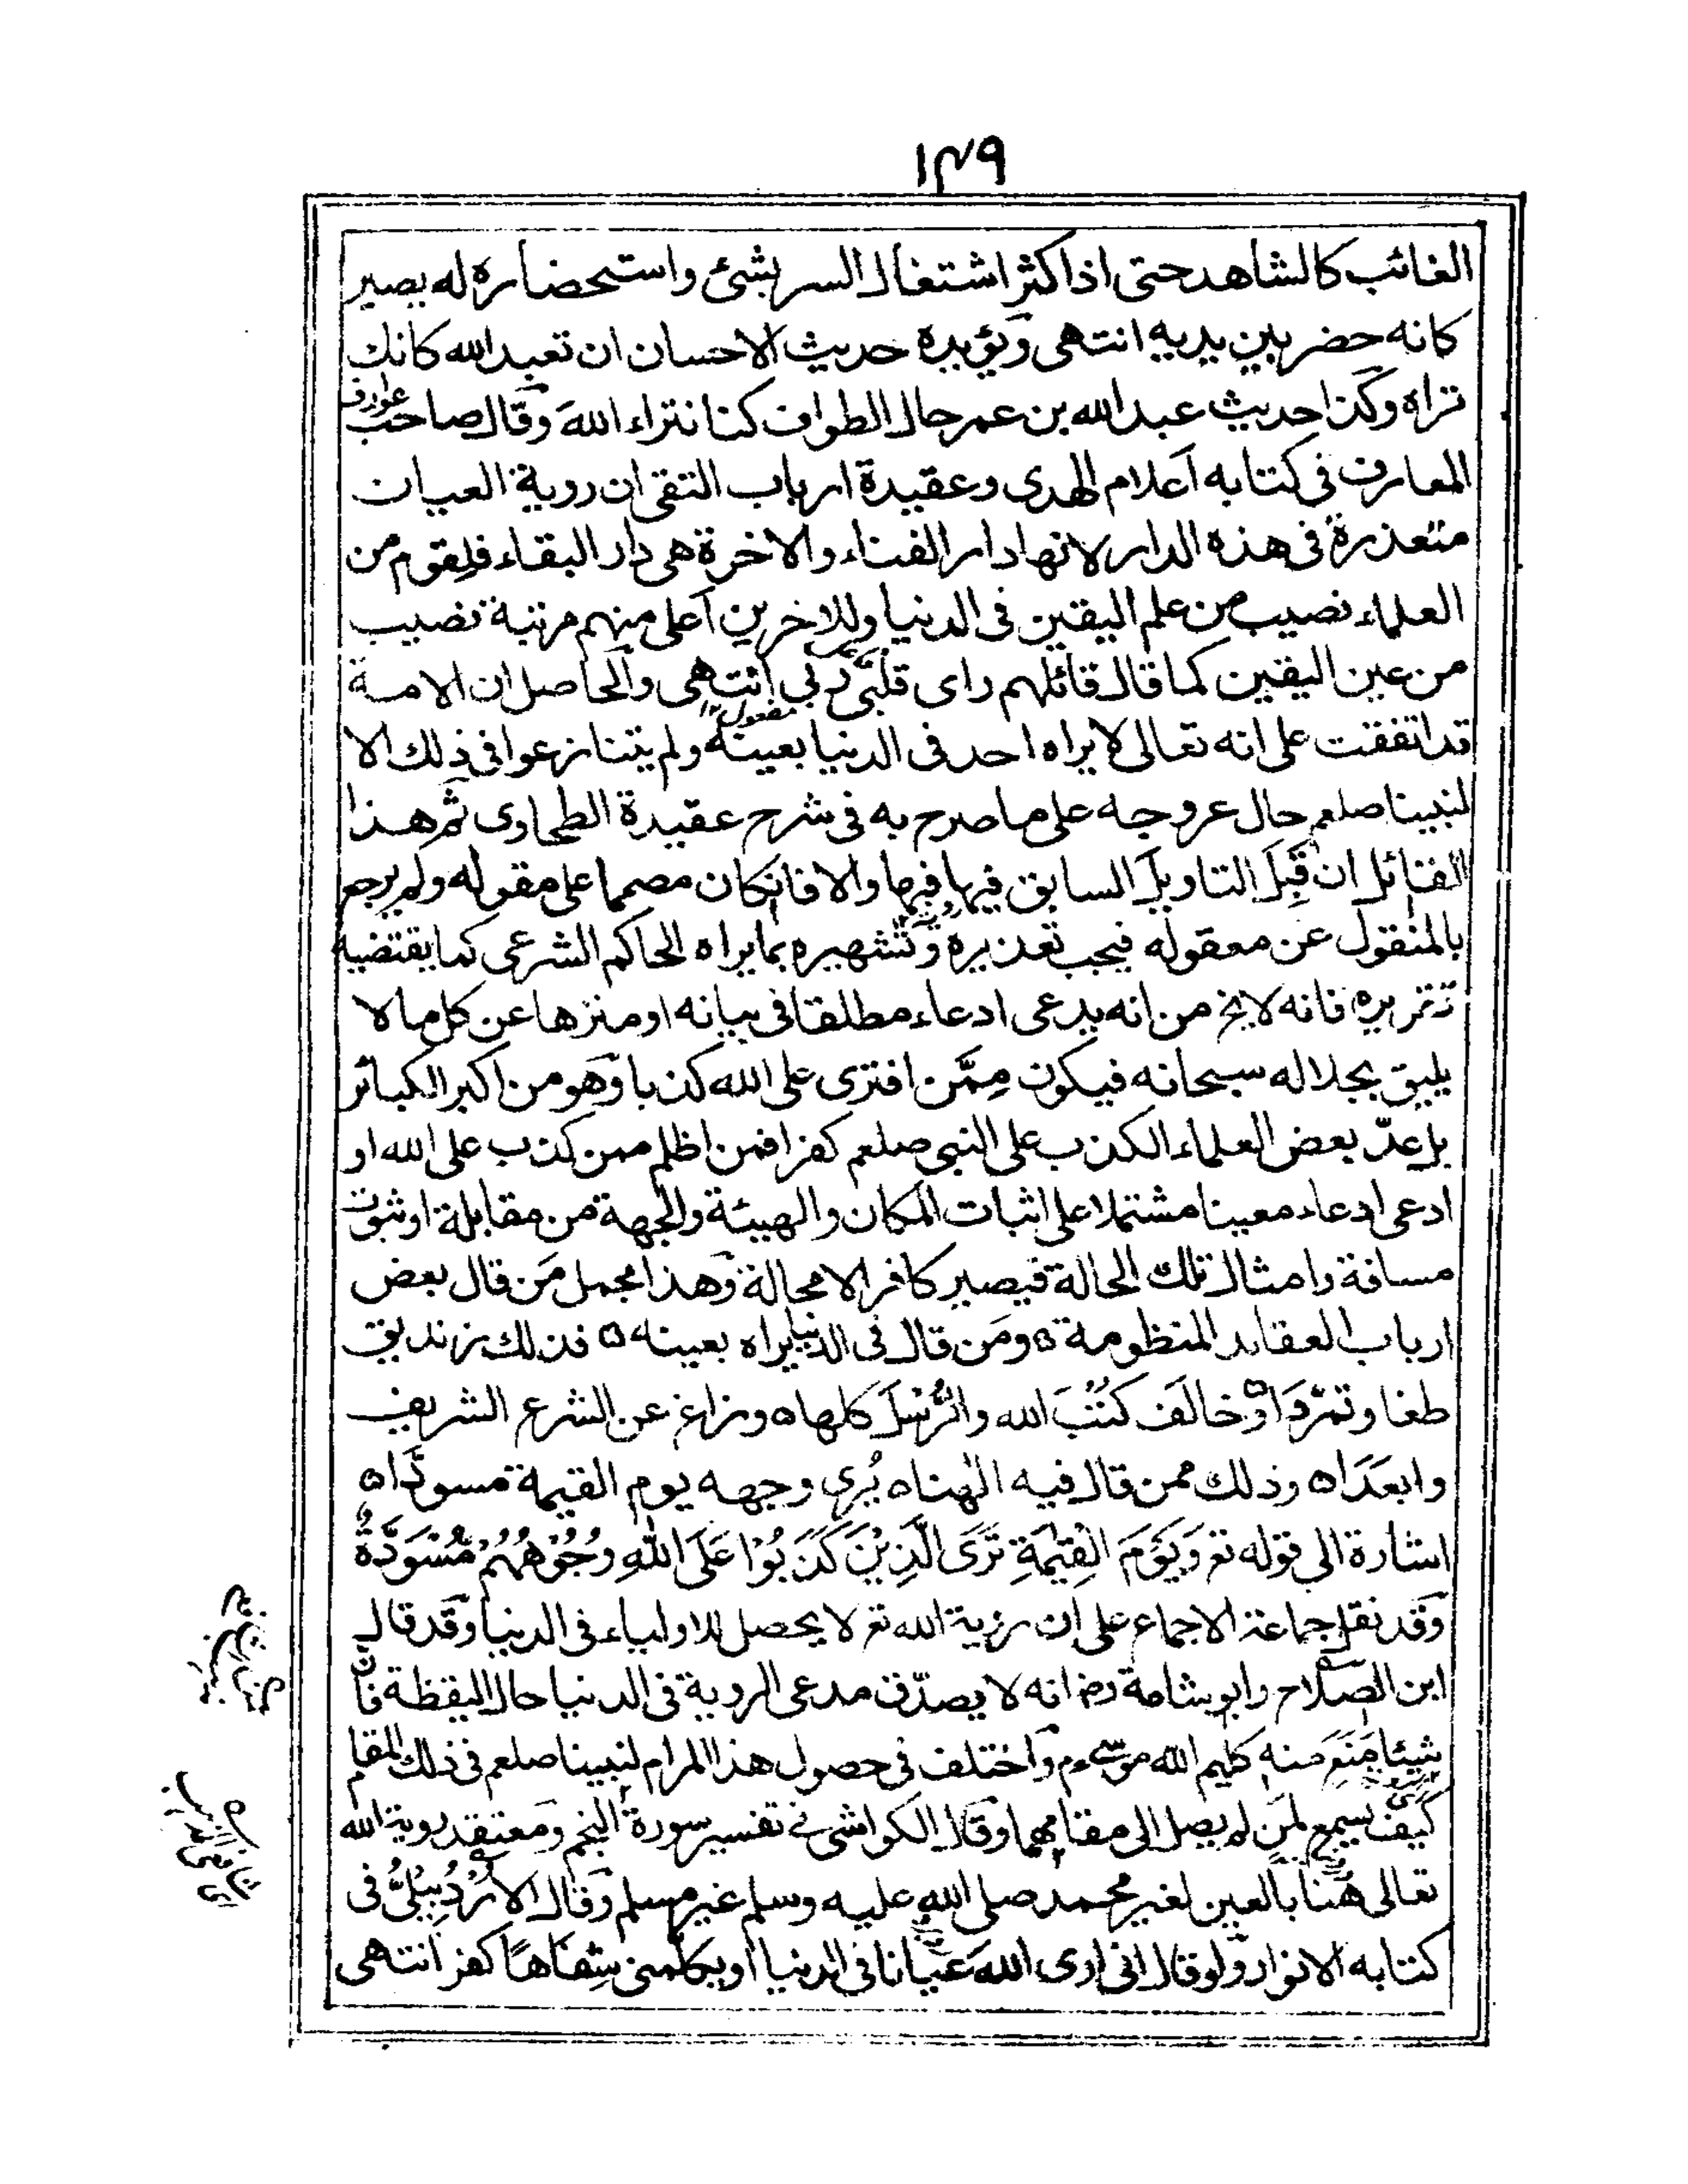 ١٣٩
الغائب كالشاهد حتى اذا كثر اشتغال السر بشئ واستحضاره له يصير
كانه حضر بين يديه انتهى ويؤيده حديث الاحسان ان تعبد الله كانك
تراه وكذا حديث عبد الله بن عمر حال الطواف كنا نتراءا الله وقال صاحب عوارف
المعارف فى كتابه اعلام الهدى وعقيدة ارباب التقى ان روية العيان
متعذرة فى هذه الدار لانها دار الفناء والاخرة هى دار البقاء فلقوم من
العلماء نصيب من علم اليقين فى الدنيا وللاخرين اعلى منهم مرتبة نصيب
من عين اليقين كما قال قائلهم راى قلبى ربى انتهى والحاصل ان الامة
قد اتفقت على انه تعالى لا يراه احد فى الدنيا بعينه ولم يتنازعوا فى ذلك الا
لنبينا صلعم حال عروجه على ما صرح به فى شرح عقيدة الطحاوى ثم هذا
القائل ان قَبِلَ التاويل السابق فيها فبها والا فانكان مصمما على مقوله ولم يرجع
بالمنقول عن معقوله فيجب تعذيره وتشهيره بما يراه الحاكم الشرعى كما يقتضيه
تقريره فانه لا يخ من انه يدعى ادعاء مطلقا فى بيانه او منزها عن كل ما لا
يليق بجلاله سبحانه فيكون مِمَّن افترى على الله كذبا وهو من اكبر الكبائر
بل عدّ بعض العلماء الكذب على النبى صلعم كفرا فمن اظلم ممن كذب على الله او
ادعى ادعاء معينا مشتملا على اثبات المكان والهيئة والجهة من مقابلة او ثبوت
مسافة وامثال تلك الحالة فيصير كافرا لا محالة وهذا مجمل مَن قال بعض
ارباب العقايد المنظومة ٥ ومَن قال فى الدنيا يراه بعينه ٥ فذلك زنديق
طغا وتمرّدَا ٥ وخالَف كُتُبَ الله والرُّسْلَ كلها ٥ وزاغ عن الشرع الشريف
وابعَدَا ٥ وذلك ممن قال فيه الهنا ٥ يُرى وجهه يوم القيمة مسودَّا ٥
اشارة الى قوله تع وَيَوْمَ الْقِيٰمَةِ تَرَى الَّذِيْنَ كَذَبُوْا عَلَى اللّٰهِ وُجُوْهُهُمْ مُّسْوَدَّةٌ
وقد نقل جماعة الاجماع على ان رؤية الله تع لا يحصل للاولياء فى الدنيا وقد قال
ابن الصلاح وابو شامة رض انه لا يصدّق مدعى الروية فى الدنيا حال اليقظة فانّ
شيئا مَنَع منه كليم الله موسى عم واختلف فى حصول هذا المرام لنبينا صلعم فى ذلك المقام
كيف يسمع لمن لم يصل الى مقامهما وقال الكواشى فى تفسير سورة النجم ومعتقد روية الله
تعالى هنا بالعين لغير محمد صلى الله عليه وسلم غير مسلم وقال الاَرْدُبِيْلِىُّ فى
كتابه الانوار ولو قال انى ارى اللهَ عيانا فى الدنيا او يكلمنى شِفاهًا كفر انتهى